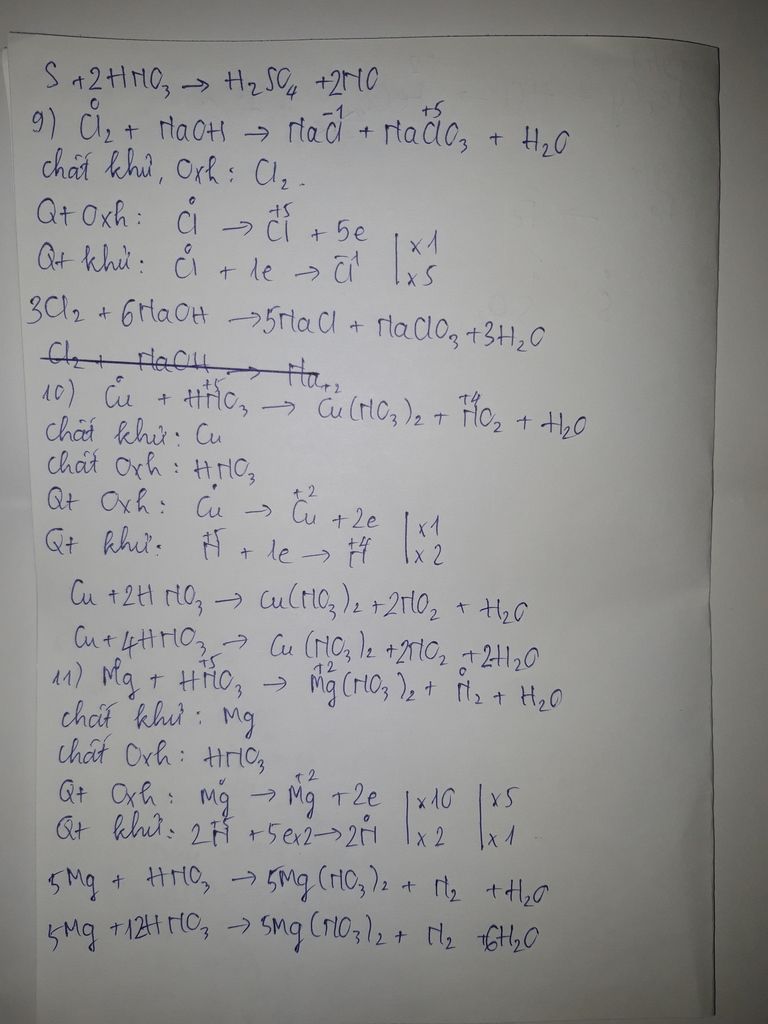 S + 2HNO₃ → H₂SO₄ + 2NO
9) Cl⁰₂ + NaOH → NaCl⁻¹ + NaCl⁺⁵O₃ + H₂O
chất khử, Oxh: Cl₂.
Qt Oxh: Cl⁰ → Cl⁺⁵ + 5e | x1
Qt khử: Cl⁰ + 1e → Cl⁻¹ | x5
3Cl₂ + 6NaOH → 5NaCl + NaClO₃ + 3H₂O
Cl₂ + NaOH → Na
10) Cu⁰ + HN⁺⁵O₃ → Cu⁺²(NO₃)₂ + N⁺⁴O₂ + H₂O
chất khử: Cu
chất Oxh: HNO₃
Qt Oxh: Cu⁰ → Cu⁺² + 2e | x1
Qt khử: N⁺⁵ + 1e → N⁺⁴ | x2
Cu + 2HNO₃ → Cu(NO₃)₂ + 2NO₂ + H₂O
Cu + 4HNO₃ → Cu(NO₃)₂ + 2NO₂ + 2H₂O
11) Mg⁰ + HN⁺⁵O₃ → Mg⁺²(NO₃)₂ + N⁰₂ + H₂O
chất khử: Mg
chất Oxh: HNO₃
Qt Oxh: Mg⁰ → Mg⁺² + 2e | x10 | x5
Qt khử: 2N⁺⁵ + 5ex2 → 2N⁰ | x2 | x1
5Mg + HNO₃ → 5Mg(NO₃)₂ + N₂ + H₂O
5Mg + 12HNO₃ → 5Mg(NO₃)₂ + N₂ + 6H₂O